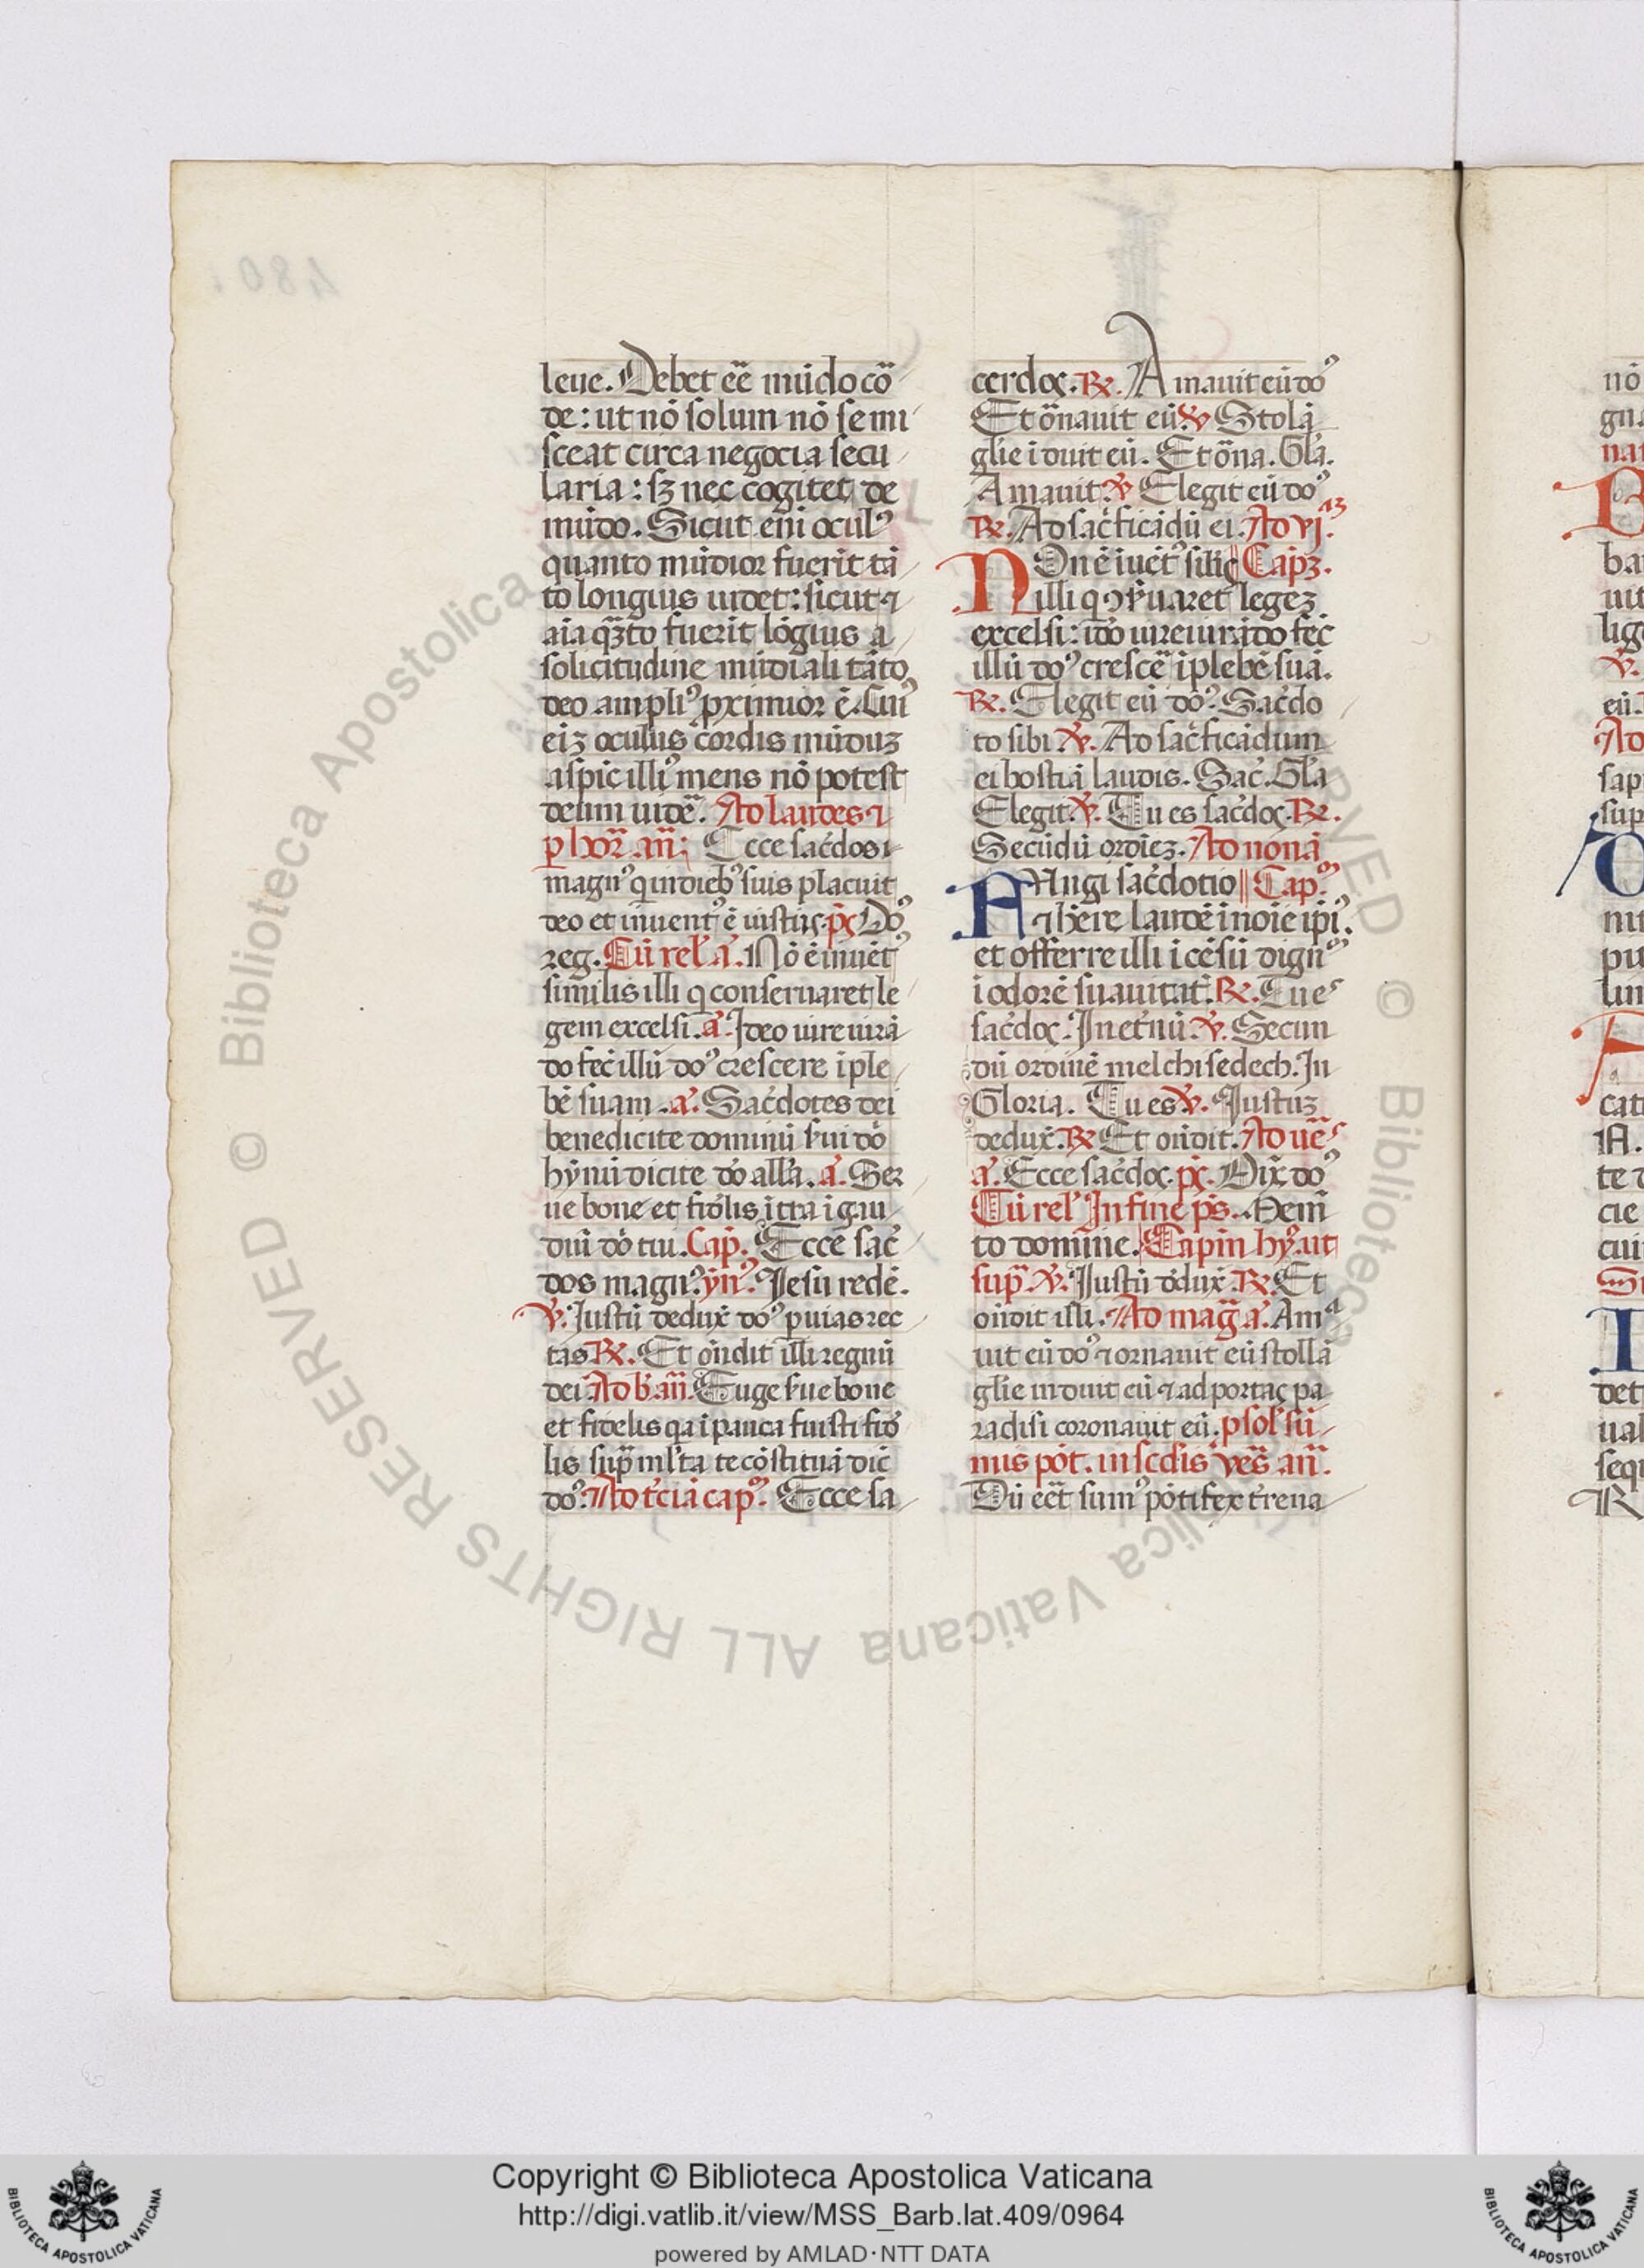 leue. Debet eē mūdo cō
de: ut nō solum nō se mi
sceat circa negocia secu
laria: sꝫ nec cogitet de
mūdo. Sicut enī oculꝰ
quanto mūdior fuerit tā
to longius uidet: sicut ⁊
aīa qꝫto fuerit lōgius a
solicitudine mūdiali tāto
deo ampliꝰ ꝓximior ē. Cuiꝰ
eīꝫ oculus cordis mūduꝫ
aspic illiꝰ mens nō potest
deum uidē. Ad laudes ⁊
ꝑ hoř añ; Ecce sac̄dos
magnꝰ q in diebꝰ suis placuit
deo et inuentꝰ ē iustus. pš Dōꝰ
reg. Cū rel̕ a̕. Nō ē inuētꝰ
similis illi q conseruaret le
gem excelsi. a̕. Ideo iureiurā
do fec̄ illū doꝰ crescere i ple
bē suam. a̕. Sac̄dotes dei
benedicite dominū ẜui dō
hȳnū dicite dō all'a. a̕. Ser
ue bone et fidelis ītra ī gau
diū dō tui. Cap̄. Ecce sac̄
dos magnꝰ. yn̄ꝰ. Iesu redē.
℣. Iustū dedux̄ doꝰ ꝑ uias rec
tas ℟. Et on̄dit illi regnū
dei. Ad b̄. añ. Euge ẜue bone
et fidelis qa ī pauca fuisti fid̄
lis sup̄ ml'ta te cōstituā dic̄
doꝰ. Ad t̄ciā capꝰ. Ecce sa
cerdos. ℟. Amauit eū doꝰ
Et ōnauit eū. ℣ Stolā
gl'ie īduit eū. Et ōna. Gl'a.
Amauit. ℣ Elegit eū doꝰ
℟. Ad sac̄ficādū ei. Ad vj.
Nōn ē iuētꝰ sil'is Capꝫ.
illi q ↄẜuaret legeꝫ
excelsi: ido iureiurādo fec̄
illū doꝰ crescē̄ ī plebē suā.
℟. Elegit eū doꝰ. Sac̄do
to sibi ℣. Ad sac̄ficādum
ei hostiā laudis. Sac̄. Gl'a
Elegit. ℣. Tu es sac̄dos. ℟.
Secūdū ordīeꝫ. Ad nonā
Fungi sac̄dotio Capꝰ
⁊ h̄ere laudē ī noīe ip̄iꝰ.
et offerre illi īcēsū dignꝰ
ī odorē suauitat̄. ℟. Tu es
sac̄dos. In et̄nū. ℣. Secun
dū ordinē melchisedech. In
Gloria. Tu es ℣. Iustuꝫ
dedux̄. ℟ Et on̄dit. Ad uēs
a̕. Ecce sac̄dos. pš. Dix̄ doꝰ
Cū rel̕ In fine p̄s. Mem̄
to domine. Capm̄ hȳ. ut
sup̄. ℣. Iustū d̄dux̄. ℟. Et
on̄dit illi. Ad mag̃ a̕. Ama
uit eū doꝰ ⁊ ornauit eū stollā
gl'ie induit eū ⁊ ad portas pa
radisi coronauit eū. p sol' sū
mis pōt. in sc̄dis ves̄ añ.
Dū ēet sumꝰ pōtifex t̄rena
nō
ba
uit
lig
℣.
eū.
Ad
sap
sup
nu
pu
lun
cat
te
cie
cui
Copyright © Biblioteca Apostolica Vaticana
http://digi.vatlib.it/view/MSS_Barb.lat.409/0964
powered by AMLAD·NTT DATA